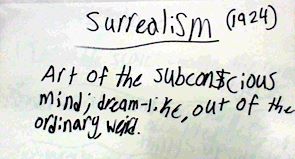 Surrealism (1924)
Art of the subconscious
mind; dream-like, out of the
ordinary, weird.